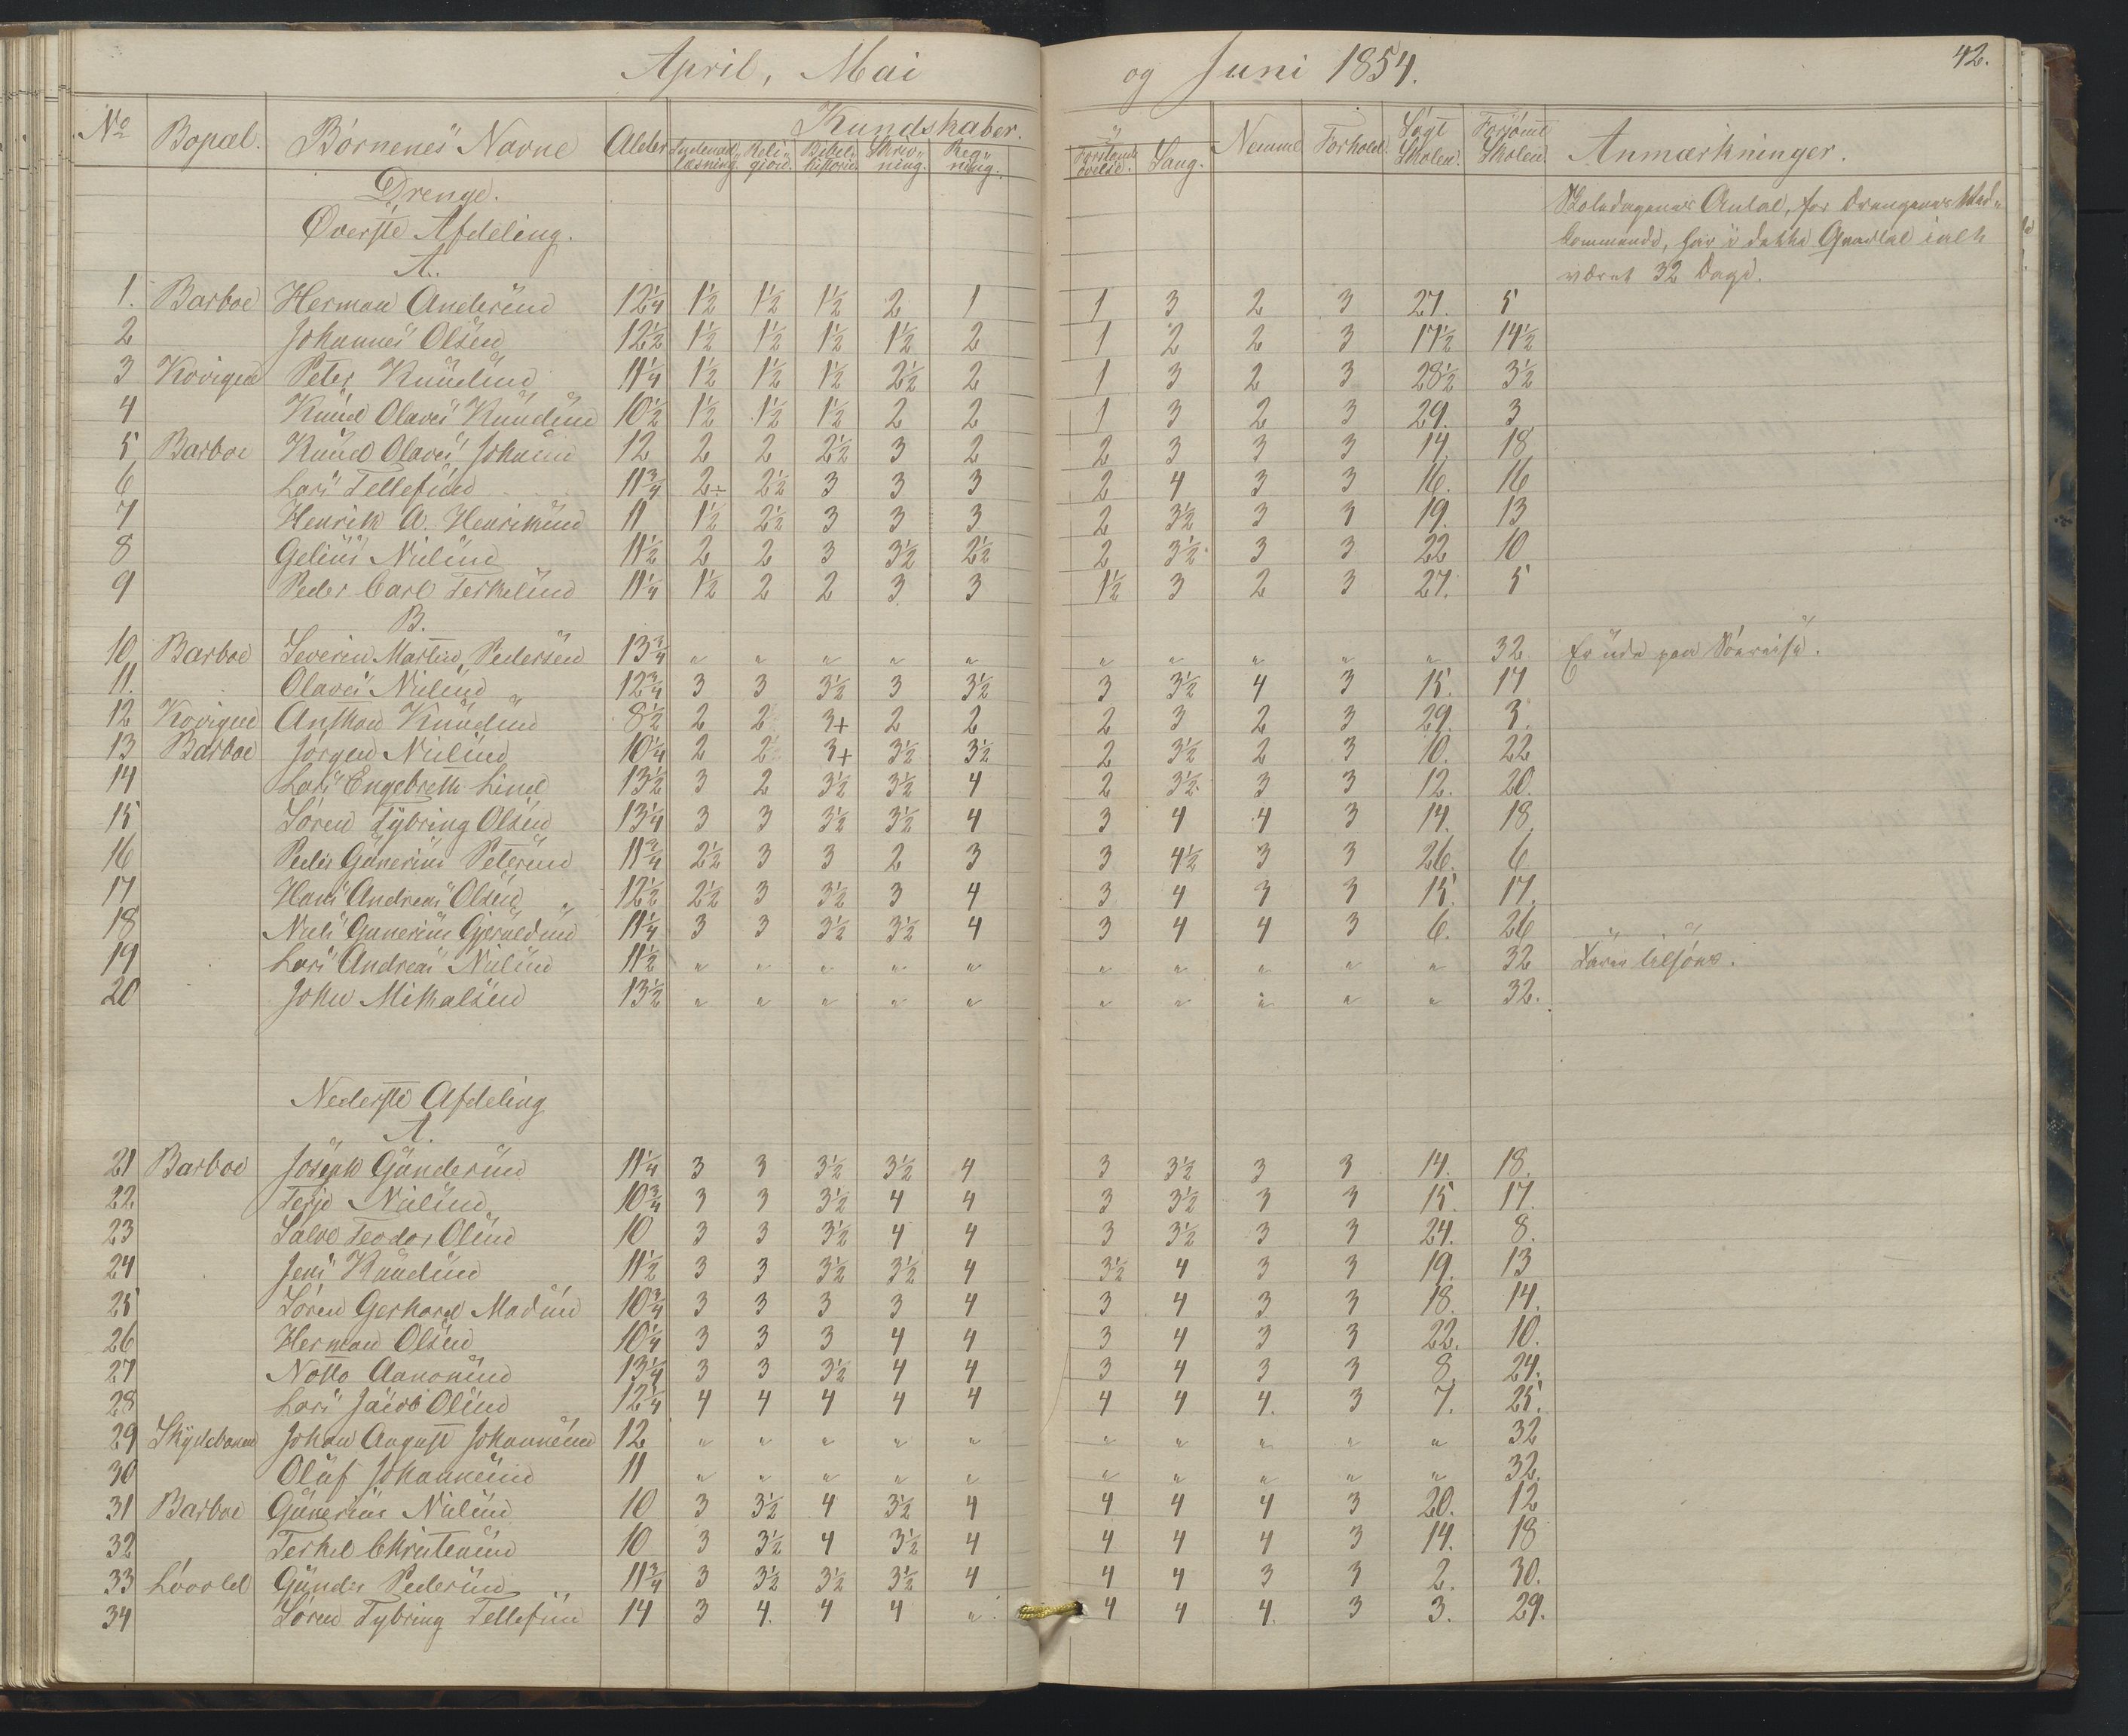 April, Mai og Juni 1854. 42.
No Bopæl. Børnenes Navne Alder Kundskaber. Nemme Forhold. Søgt Skolen. Forsømt Skolen. Anmærkninger.
Indenad læsning. Reli gion. Bibel historie. Skriv ning. Reg ning. Forstands øvelse. Sang.
Drenge. Skoledagenes Antal, for Drengenes Ved
Øverste Afdeling. kommende, har i dette Qvartal ialt
A. været 32 Dage.
1. Barboe Herman Andersen 12¼ 1½ 1½ 1½ 2 1 1 3 2 3 27. 5
2 Johannes Olsen 12½ 1½ 1½ 1½ 1½ 2 1 2 2 3 17½ 14½
3 Kovigen Peter Knudsen 11¼ 1½ 1½ 1½ 2½ 2 1 3 2 3 28½ 3½
4 Knud Olaves Knudsen 10½ 1½ 1½ 1½ 2 2 1 3 2 3 29. 3
5 Barboe Knud Olaves Johnsen 12 2 2 2½ 3 2 2 3 3 3 14. 18
6 Lars Tellefsen 11¾ 2÷ 2½ 3 3 3 2 4 3 3 16. 16
7 Henrik A. Henriksen 11 1½ 2½ 3 3 3 2 3½ 3 3 19. 13
8 Gelius Nielsen 11½ 2 2 3 3½ 2½ 2 3½ 3 3 22 10
9 Peder Carl Terkelsen 11¼ 1½ 2 2 3 3 1½ 3 2 3 27. 5
B.
10 Barboe Severin Martin Pedersen 13¾ " " " " " " " " " " 32 Er ude paa Søereise.
11. Olaves Nielsen 12¾ 3 3 3½ 3 3½ 3 3½ 4 3 15. 17
12 Kovigen Anthon Knudsen 8½ 2 2 3+ 2 2 2 3 2 3 29. 3.
13 Barboe Jørgen Nielsen 10¼ 2 2 3+ 3½ 3½ 2 3½ 2 3 10. 22
14 Lars Engebreth Lind 13½ 3 2 3½ 3½ 4 2 3½ 3 3 12. 20.
15 Søren Tybring Olsen 13¼ 3 3 3½ 3½ 4 3 4 4 3 14. 18
16 Peder Gunerius Petersen 11¾ 2½ 3 3 2 3 3 4½ 3 3 26. 6
17 Hans Andreas Olsen 12½ 2½ 3 3½ 3 4 3 4 3 3 15. 17.
18 Niels Gunerius Gjeruldsen 11¼ 3 3 3½ 3½ 4 3 4 4 3 6. 26
19 Lars Andreas Nielsen 11½ " " " " " " " " " " 32 tilsøes.
20 John Mikalsen 13½ " " " " " " " " " " 32.
Nederste Afdeling
A.
21 Barboe Joseph Gundersen 11¼ 3 3 3½ 3½ 4 3 3½ 3 3 14. 18.
22 Terje Nielsen 10¾ 3 3 3½ 4 4 3 3½ 3 3 15. 17.
23 Salve Teodor Olsen 10 3 3 3½ 4 4 3 3½ 3 3 24. 8.
24 Jens Knudsen 11½ 3 3 3½ 3½ 4 3½ 4 3 3 19. 13
25 Søren Gerhard Madsen 10¾ 3 3 3 3 4 3 4 3 3 18. 14.
26 Herman Olsen 10¼ 3 3 3 4 4 3 4 3 3 22. 10.
27 Notto Aanonsen 13¼ 3 3 3½ 4 4 3 4 3 3 8 24.
28 Lars Jacob Olsen 12¼ 4 4 4 4 4 4 4 4. 3 7. 25.
29 Skydebanen Johan August Johannesen 12 " " " " " " " " " " 32
30 Oluf Johannesen 11 " " " " " " " " " " 32.
31 Barboe Gunerius Nielsen 10 3 3½ 4 3½ 4 4 4 4 3 20. 12
32 Terkel Christensen 10 3 3½ 4 3½ 4 4 4 4 3 14. 18
33 Løvold Gunder Pedersen 11¾ 3 3½ 3½ 3½ 4 4 4 3 3 2. 30.
34 Søren Tybring Tellefsen 14 3 4. 4 4 " 4 4 4. 3 3. 29.